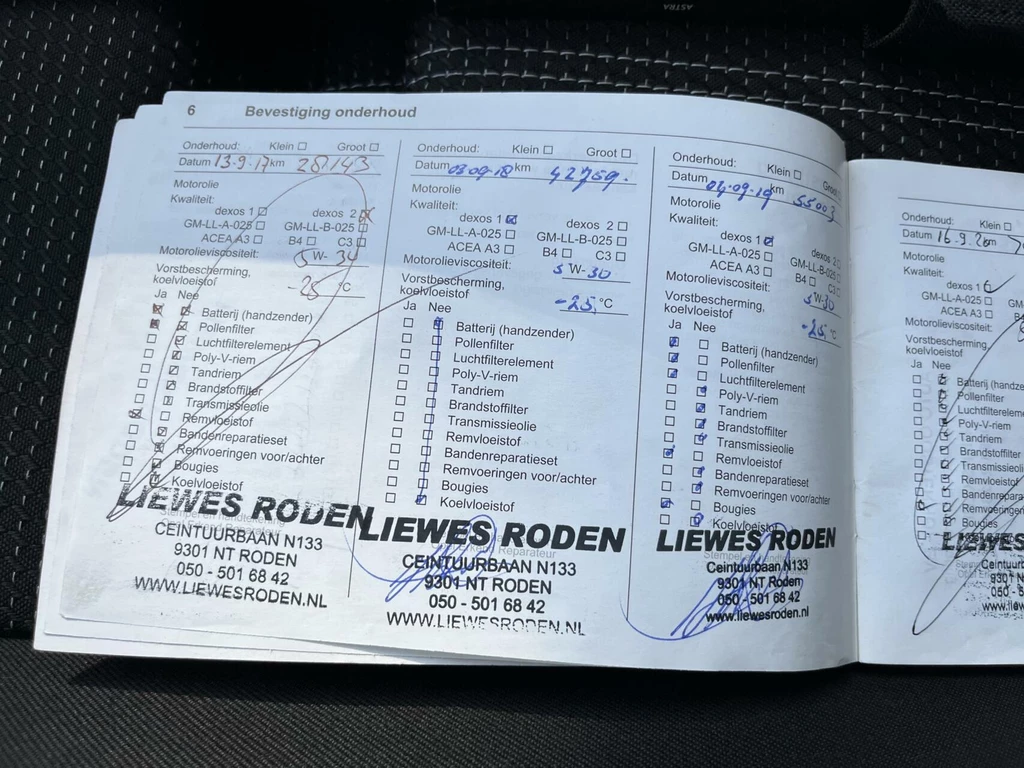 ASTRA
6 Bevestiging onderhoud
Onderhoud: Klein Groot
Datum 13.9.17 km 28143
Motorolie
Kwaliteit:
dexos 1 dexos 2
GM-LL-A-025 GM-LL-B-025
ACEA A3 B4 C3
Motorolieviscositeit: 5 W- 30
Vorstbescherming,
koelvloeistof -25 °C
Ja Nee
Batterij (handzender)
Pollenfilter
Luchtfilterelement
Poly-V-riem
Tandriem
Brandstoffilter
Transmissieolie
Remvloeistof
Bandenreparatieset
Remvoeringen voor/achter
Bougies
Koelvloeistof
LIEWES RODEN
CEINTUURBAAN N133
9301 NT RODEN
050 - 501 68 42
WWW.LIEWESRODEN.NL
Onderhoud: Klein Groot
Datum 03.09.18 km 42759.
Motorolie
Kwaliteit:
dexos 1 dexos 2
GM-LL-A-025 GM-LL-B-025
ACEA A3 B4 C3
Motorolieviscositeit: 5 W-30
Vorstbescherming,
koelvloeistof -25, °C
Ja Nee
Batterij (handzender)
Pollenfilter
Luchtfilterelement
Poly-V-riem
Tandriem
Brandstoffilter
Transmissieolie
Remvloeistof
Bandenreparatieset
Remvoeringen voor/achter
Bougies
Koelvloeistof
Reparateur
LIEWES RODEN
CEINTUURBAAN N133
9301 NT RODEN
050 - 501 68 42
WWW.LIEWESRODEN.NL
Onderhoud: Klein
Datum 04.09.19 km 55003
Motorolie
Kwaliteit:
dexos 1 dexos 2
GM-LL-A-025 GM-LL-B-025
ACEA A3 B4 C3
Motorolieviscositeit: 5 W-30
Vorstbescherming,
koelvloeistof -25 °C
Ja Nee
Batterij (handzender)
Pollenfilter
Luchtfilterelement
Poly-V-riem
Tandriem
Brandstoffilter
Transmissieolie
Remvloeistof
Bandenreparatieset
Remvoeringen voor/achter
Bougies
Koelvloeistof
LIEWES RODEN
Ceintuurbaan N133
9301 NT Roden
050 - 501 68 42
www.liewesroden.nl
Onderhoud: Klein
Datum 16.9.20 km
Motorolie
Kwaliteit:
dexos 1
GM-LL-A-025
ACEA A3
Motorolieviscositeit:
Vorstbescherming,
koelvloeistof
Ja Nee
Batterij (handzender)
Pollenfilter
Luchtfilterelement
Poly-V-riem
Tandriem
Brandstoffilter
Transmissieolie
Remvloeistof
Bandenrepara
Remvoeringen
Bougies
LIEWES